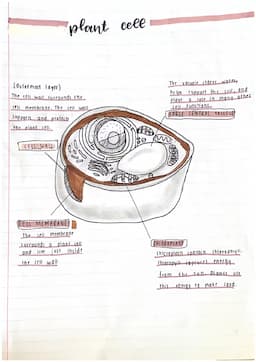 plant cell
(outermost layer)
The cell wall surrounds the
cell membrane. The cell wall
supports and protects
the plant cell.
CELL WALL
The vacuole stores water,
helps support the cell, and
plays a role in many other
cell functions.
LARGE CENTRAL VACUOLE
CELL MEMBRANE
The cell membrane
surrounds a plant cell
and lies just inside
the cell wall
CHLOROPLAST
Chloroplasts contain chlorophyll.
captures energy
from the sun. Plants use
this energy to make food.